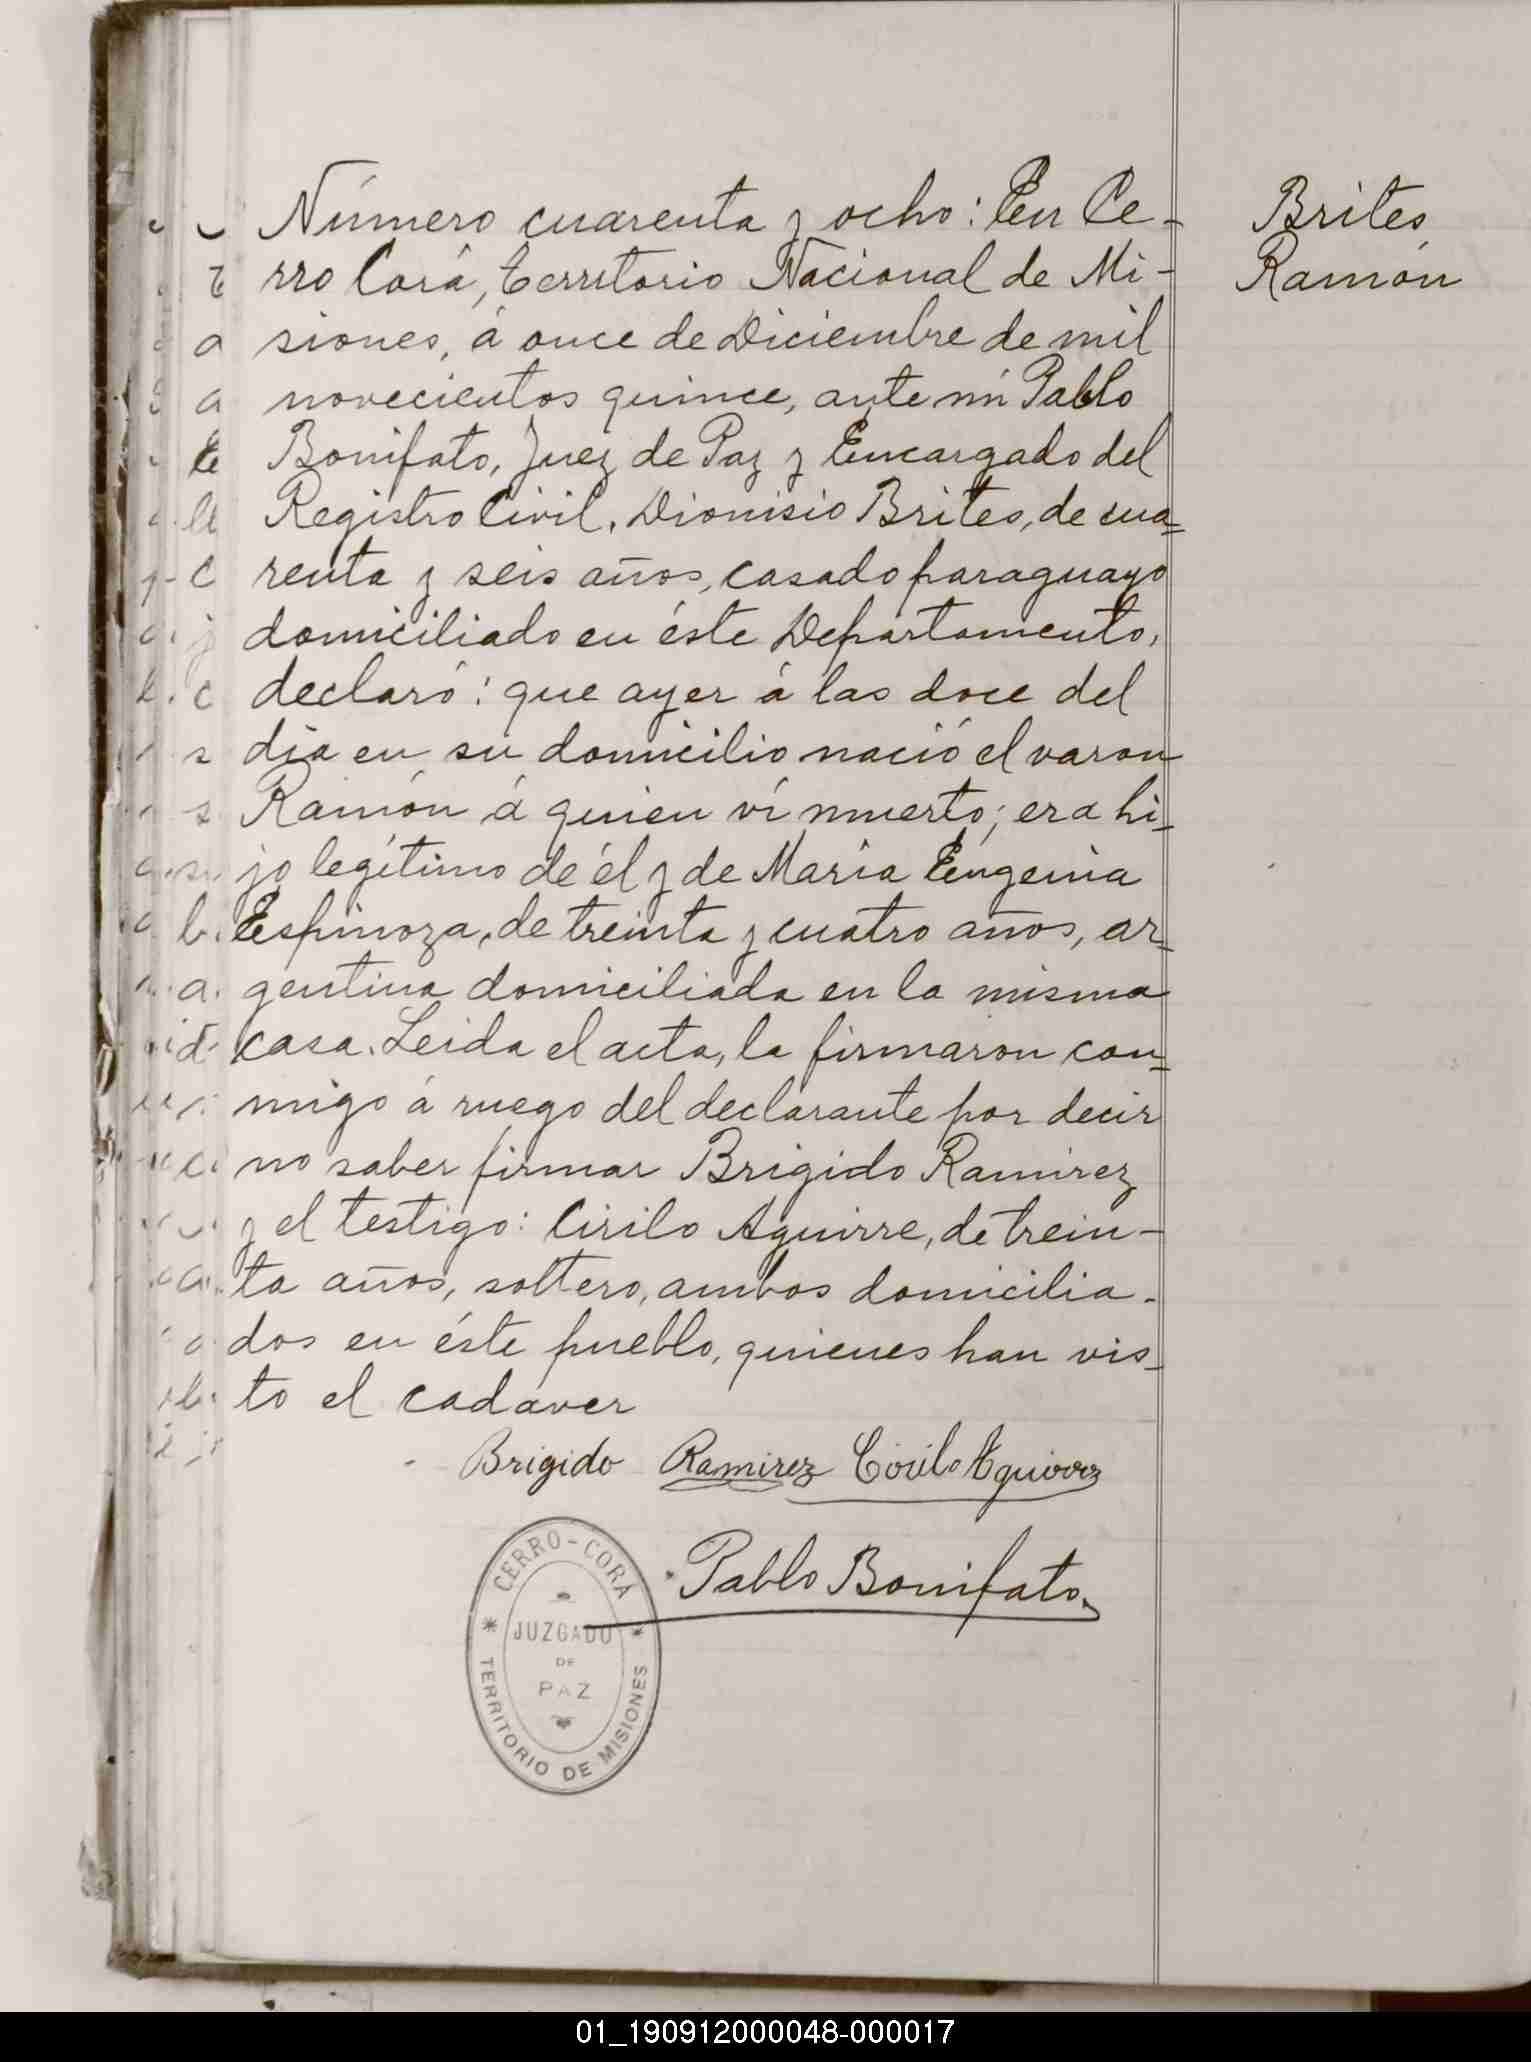 Número cuarenta y ocho: En Ce-
rro Corá, territorio Nacional de Mi-
siones, á once de Diciembre de mil
novecientos quince, ante mí Pablo
Bonifato, Juez de Paz y Encargado del
Registro Civil, Dionisio Brites, de cua=
renta y seis años, casado paraguayo
domiciliado en éste Departamento,
declaró: que ayer á las doce del
dia en su domicilio nació el varon
Ramón á quien ví muerto; era hi=
jo legítimo de él y de Maria Eugenia
Espinoza, de treinta y cuatro años, ar=
gentina domiciliada en la misma
casa. Leida el acta, la firmaron con=
migo á ruego del declarante por decir
no saber firmar Brigido Ramirez
y el testigo: Cirilo Aguirre, de trein-
ta años, soltero, ambos domicilia-
dos en éste pueblo, quienes han vis=
to el cadaver
Brigido Ramirez Cirilo Aguirrez
Pablo Bonifato
CERRO-CORA
JUZGADO
DE
PAZ
TERRITORIO DE MISIONES
Brites
Ramón
01_190912000048-000017